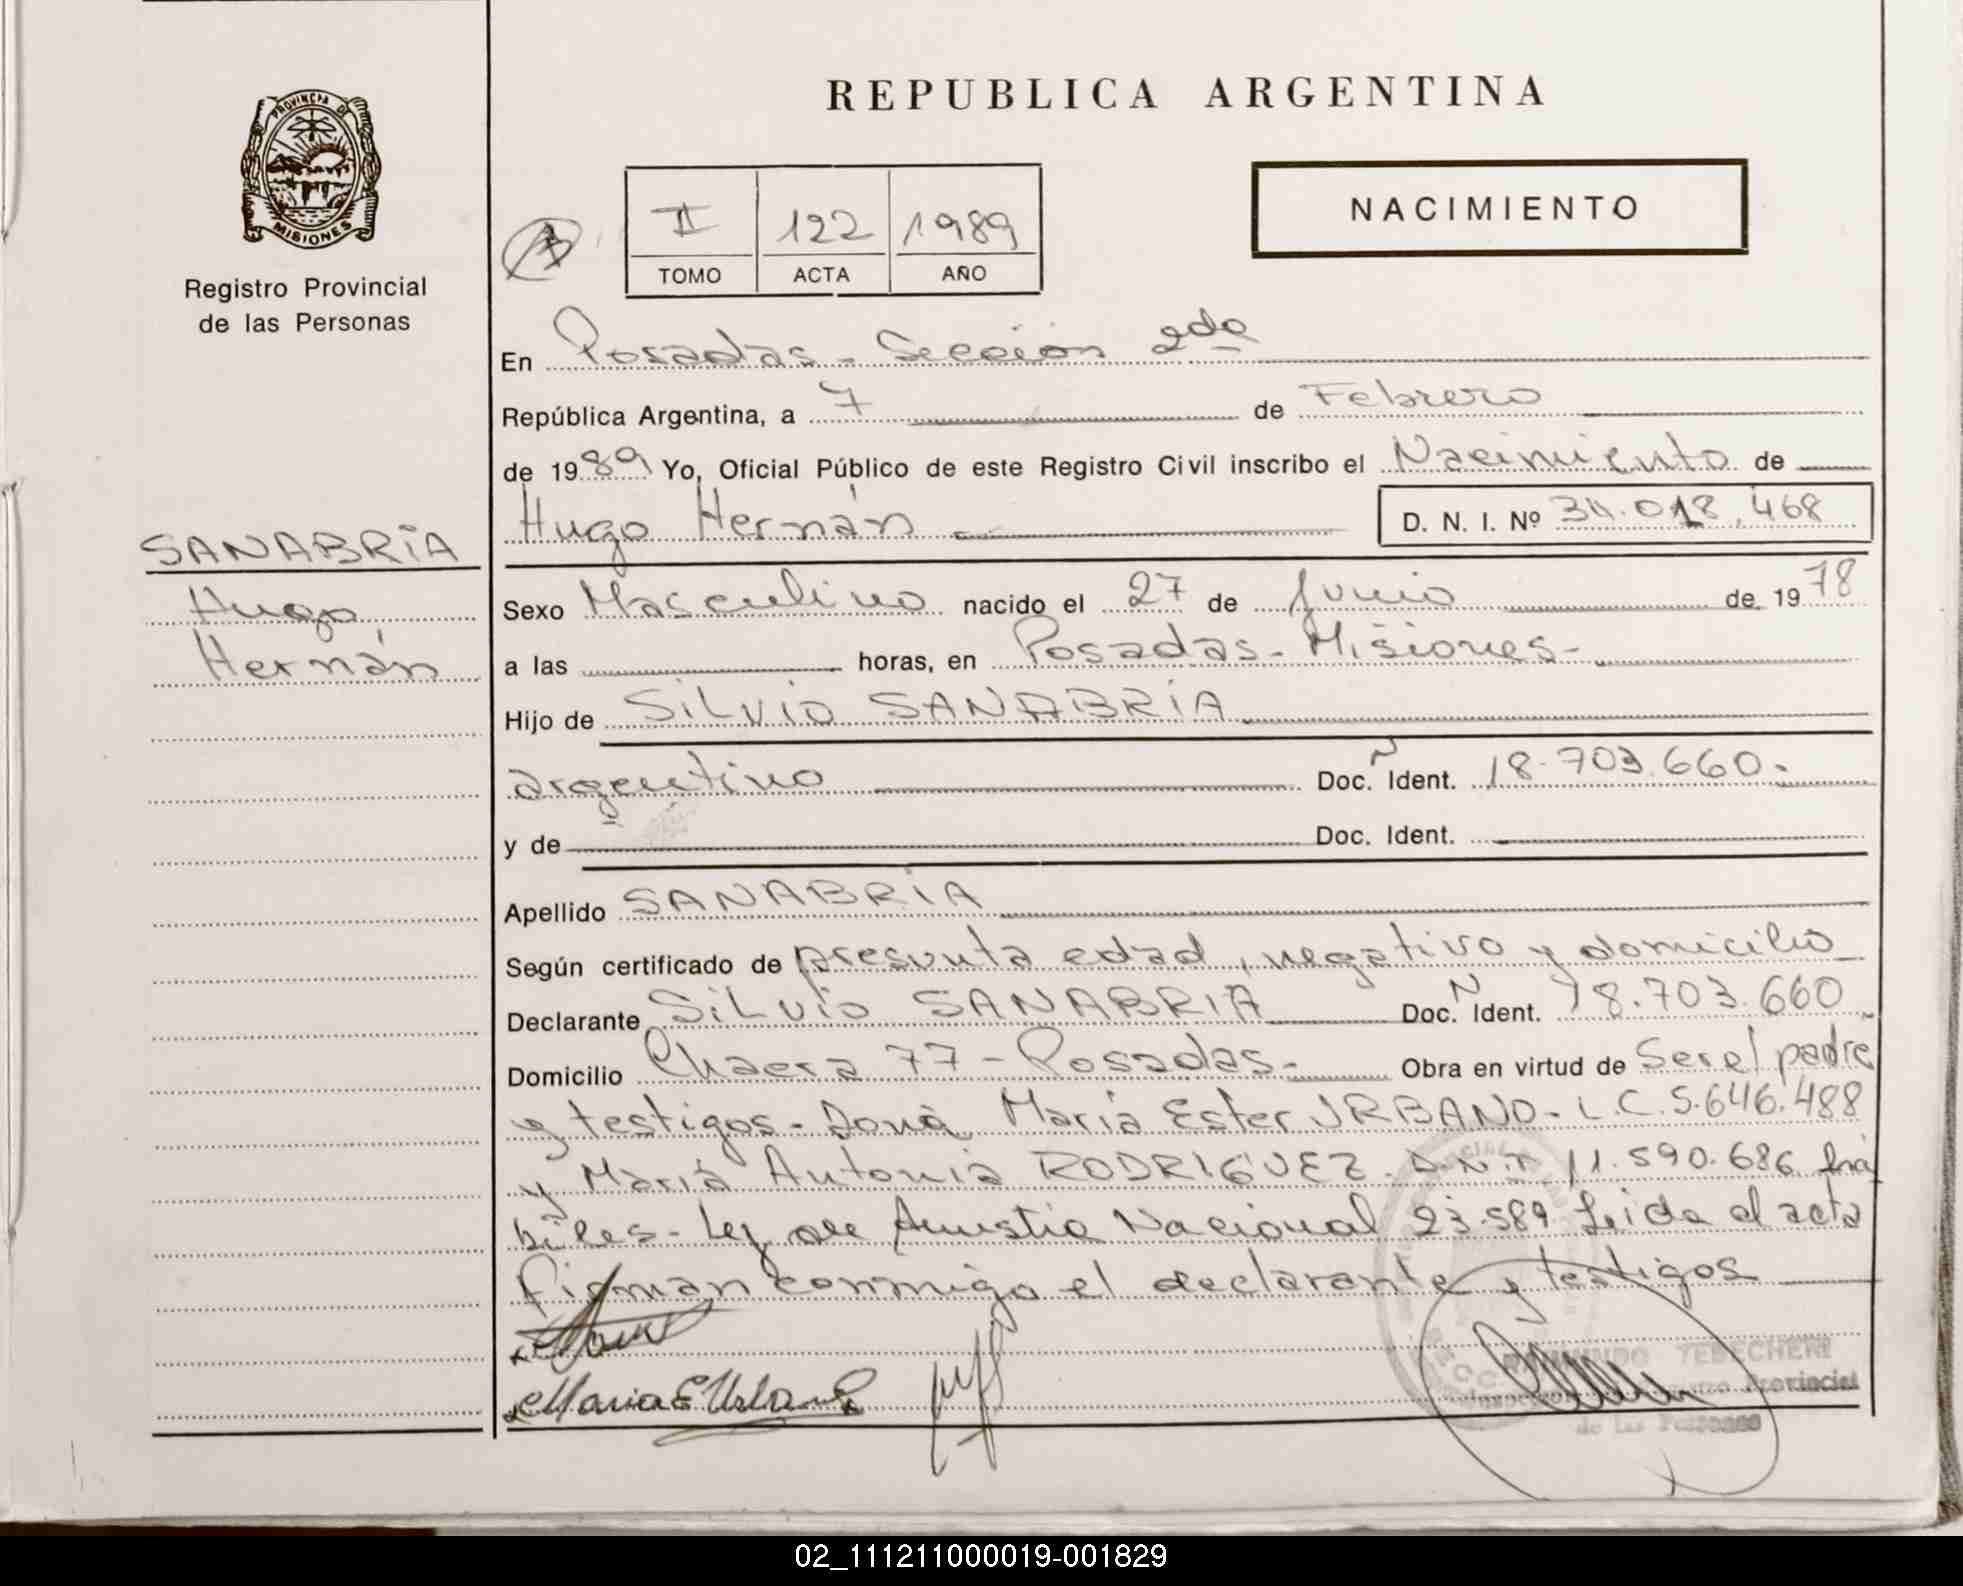 REPUBLICA ARGENTINA
PROVINCIA DE
MISIONES
Registro Provincial
de las Personas
II 122 1989
TOMO ACTA AÑO
NACIMIENTO
En Posadas - Sección 2da
República Argentina, a 7 de Febrero
de 1989 Yo, Oficial Público de este Registro Civil inscribo el Nacimiento de
Hugo Hernán D. N. I. Nº 34.018.468
SANABRIA
Hugo
Hernán
Sexo Masculino nacido el 27 de Junio de 1978
a las horas, en Posadas - Misiones -
Hijo de SILVIO SANABRIA
argentino Doc. Ident. 18.703.660.
y de Doc. Ident.
Apellido SANABRIA
Según certificado de presunta edad, negativo y domicilio
Declarante SILVIO SANABRIA Doc. Ident. 18.703.660
Domicilio Chacra 77 - Posadas - Obra en virtud de Ser el padre
y testigos - Doña María Ester URBANO - L.C. 5.646.488
y María Antonia RODRIGUEZ. D.N.I. 11.590.686 há
biles - Ley de Amnistía Nacional 23.589 Leída el acta
firman conmigo el declarante y testigos
Maria E Urbano
TEBECHERI
Provincial
de las Personas
02_111211000019-001829